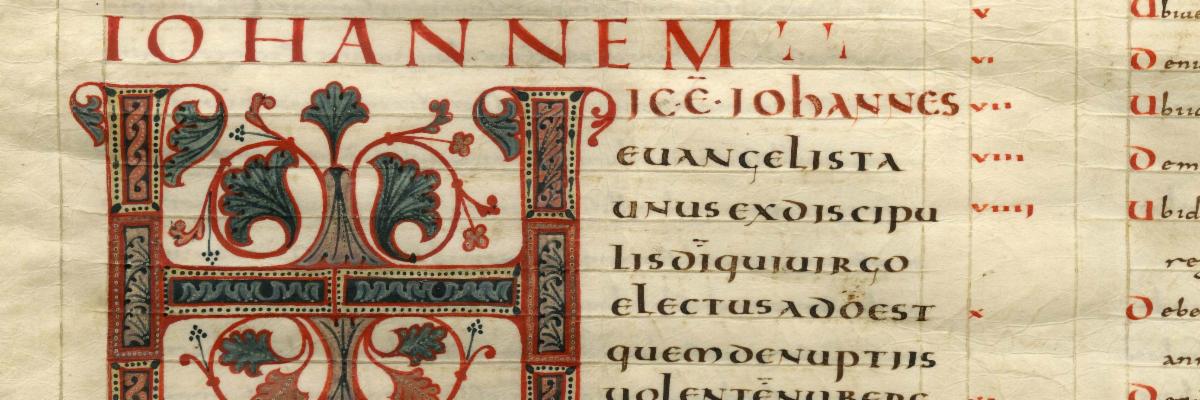 IOHANNEM
HIC EST IOHANNES
EUANGELISTA
UNUS EX DISCIPU
LIS DI QUI UIRGO
ELECTUS A DO EST
QUEM DE NUPTIIS
UOLENTE NUBERE
v
vi
vii
viii
viiii
x
Ubi
Deni
Ubi
Dem
Ubi
Debe